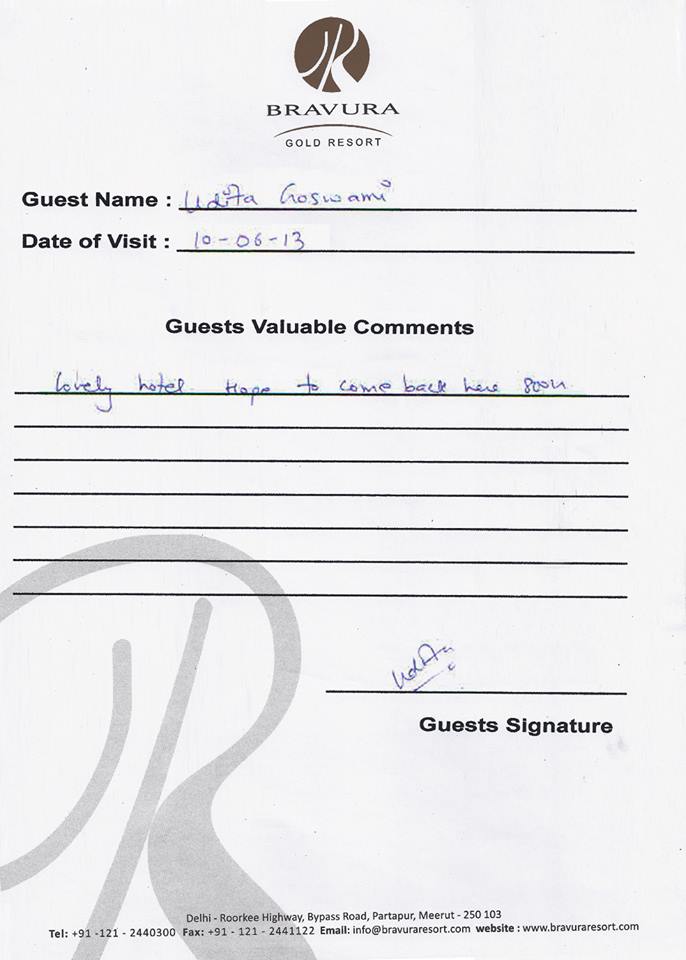 BRAVURA
GOLD RESORT
Guest Name : Udita Goswami
Date of Visit : 10-06-13
Guests Valuable Comments
Lovely hotel. Hope to come back here soon.
Udita
Guests Signature
Delhi - Roorkee Highway, Bypass Road, Partapur, Meerut - 250 103
Tel: +91 -121 - 2440300 Fax: +91 - 121 - 2441122 Email: info@bravuraresort.com website : www.bravuraresort.com